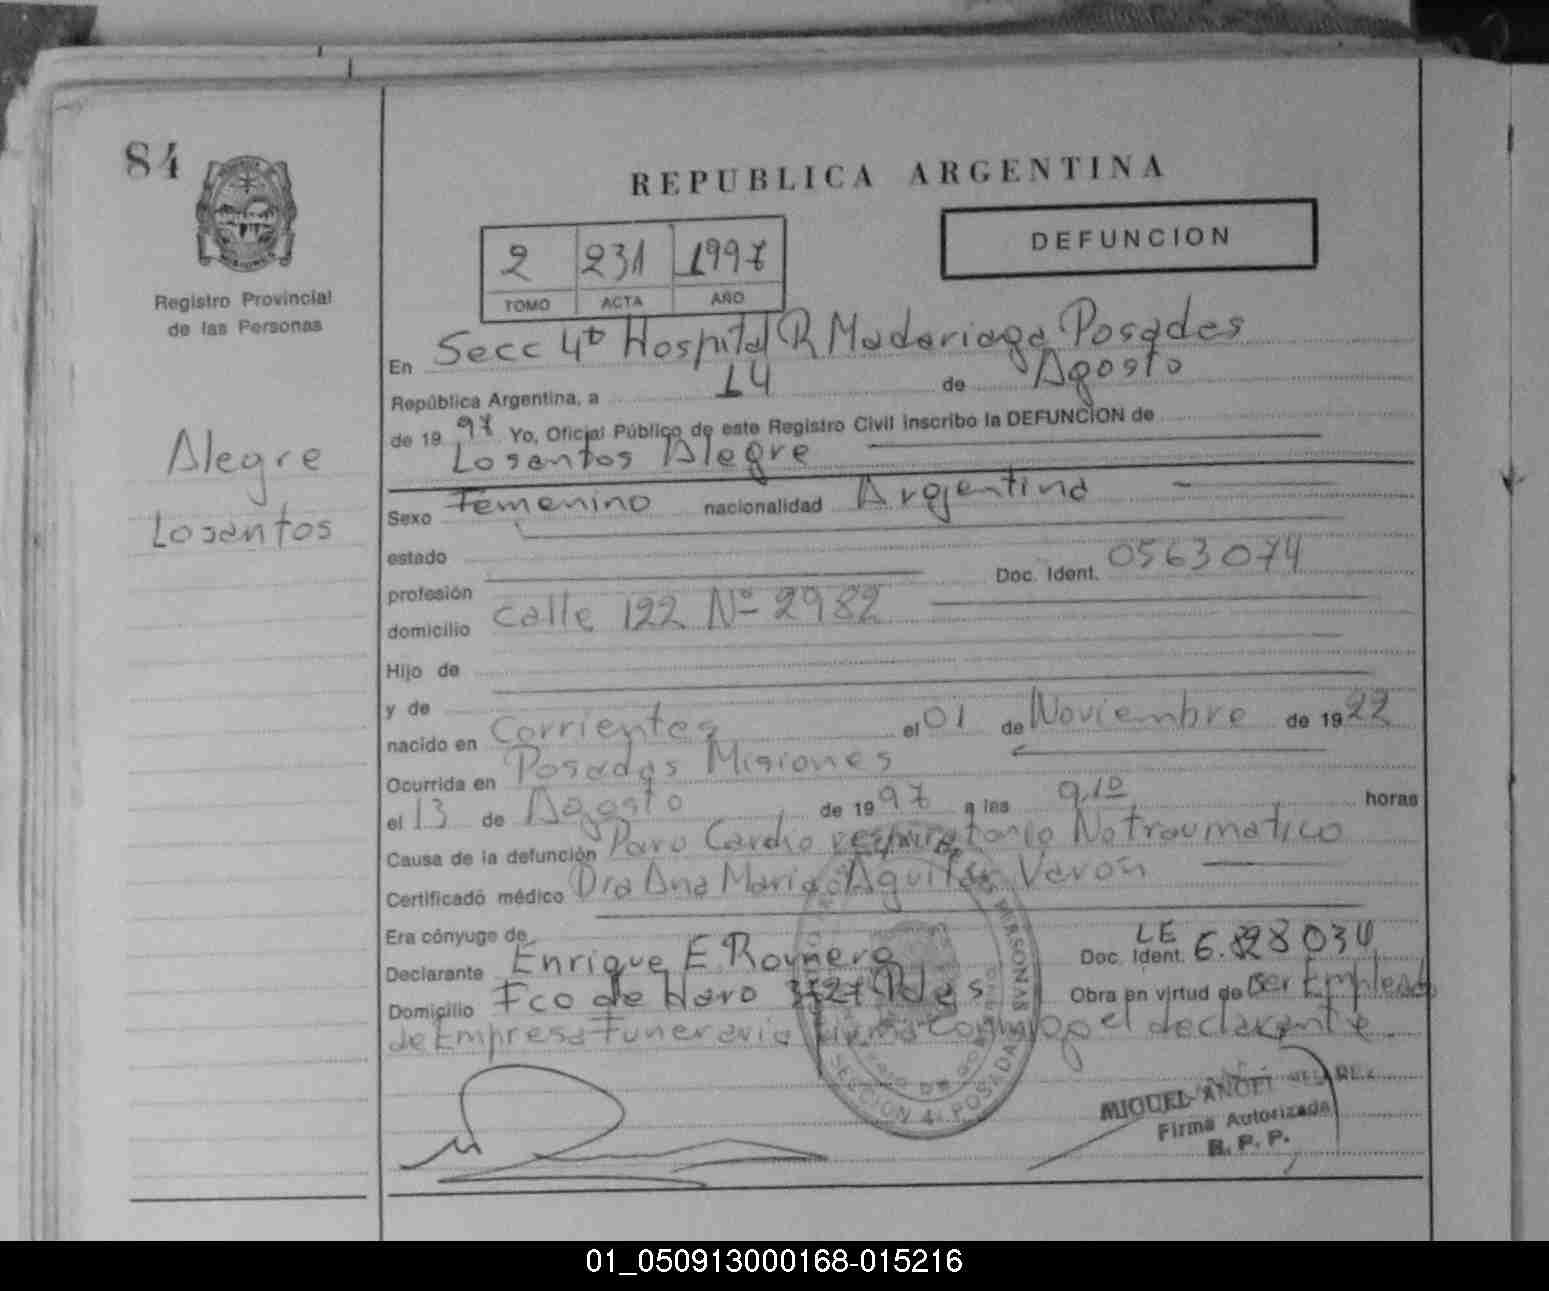 84
REPUBLICA ARGENTINA
2 231 1997
TOMO ACTA AÑO
DEFUNCION
Registro Provincial
de las Personas
Alegre
Losantos
En Secc 4ta Hospital R Madariaga Posadas
República Argentina, a 14 de Agosto
de 19 97 Yo, Oficial Público de este Registro Civil inscribo la DEFUNCION de
Losantos Alegre
Sexo Femenino nacionalidad Argentina
estado
profesión Doc. Ident. 0563074
domicilio calle 122 Nº 2982
Hijo de
y de
nacido en Corrientes el 01 de Noviembre de 19 22
Ocurrida en Posadas Misiones
el 13 de Agosto de 19 97 a las 9,10 horas
Causa de la defunción Paro Cardio respiratorio No traumatico
Certificado médico Dra Ana Maria Aguilar Veron
Era cónyuge de
Declarante Enrique E. Doc. Ident. LE 6.828034
Domicilio Fco de Haro Pdas Obra en virtud de ser Empleado
de Empresa Funeraria firma conmigo el declarante.
PERSONAS
SECCION 4ª POSADAS
MIGUEL ANGEL
Firma Autorizada
R. P. P.
01_050913000168-015216